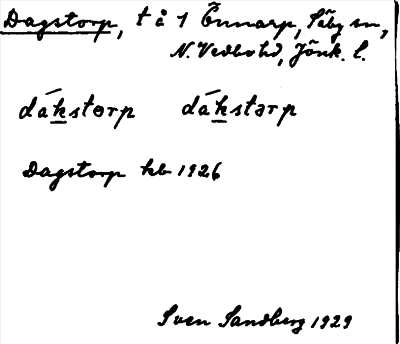 Dagstorp, t å 1 Önnarp, Säby sn,
N. Vedbohd, Jönk. l.
dákstorp dákstərp
Dagstorp hb 1926
Sven Sandberg 1929